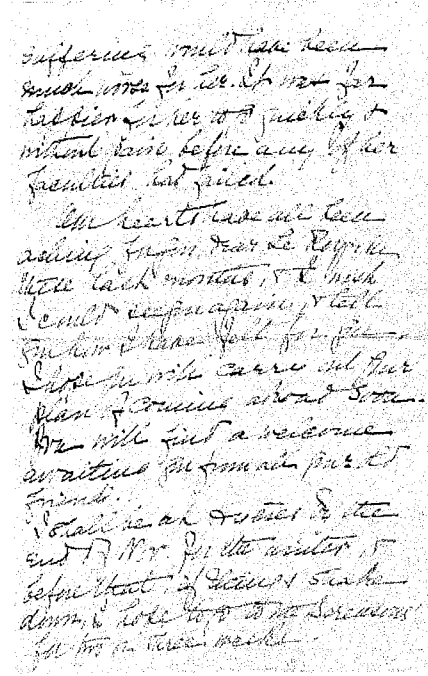 suffering would have been
much worse for her. It was far
happier for her to go quickly &
without pain before any of her
faculties had failed.
Our hearts have all been
aching for you, dear Le
these last months, & I wish
I could see you again, & tell
you how I have felt for you.
I hope you will carry out your
plan of coming abroad soon.
You will find a welcome
awaiting you from all your old
friends.
I shall be at by the
end of Nov. for the winter, &
before that, if things
down, I hope to go to
for two or three weeks.